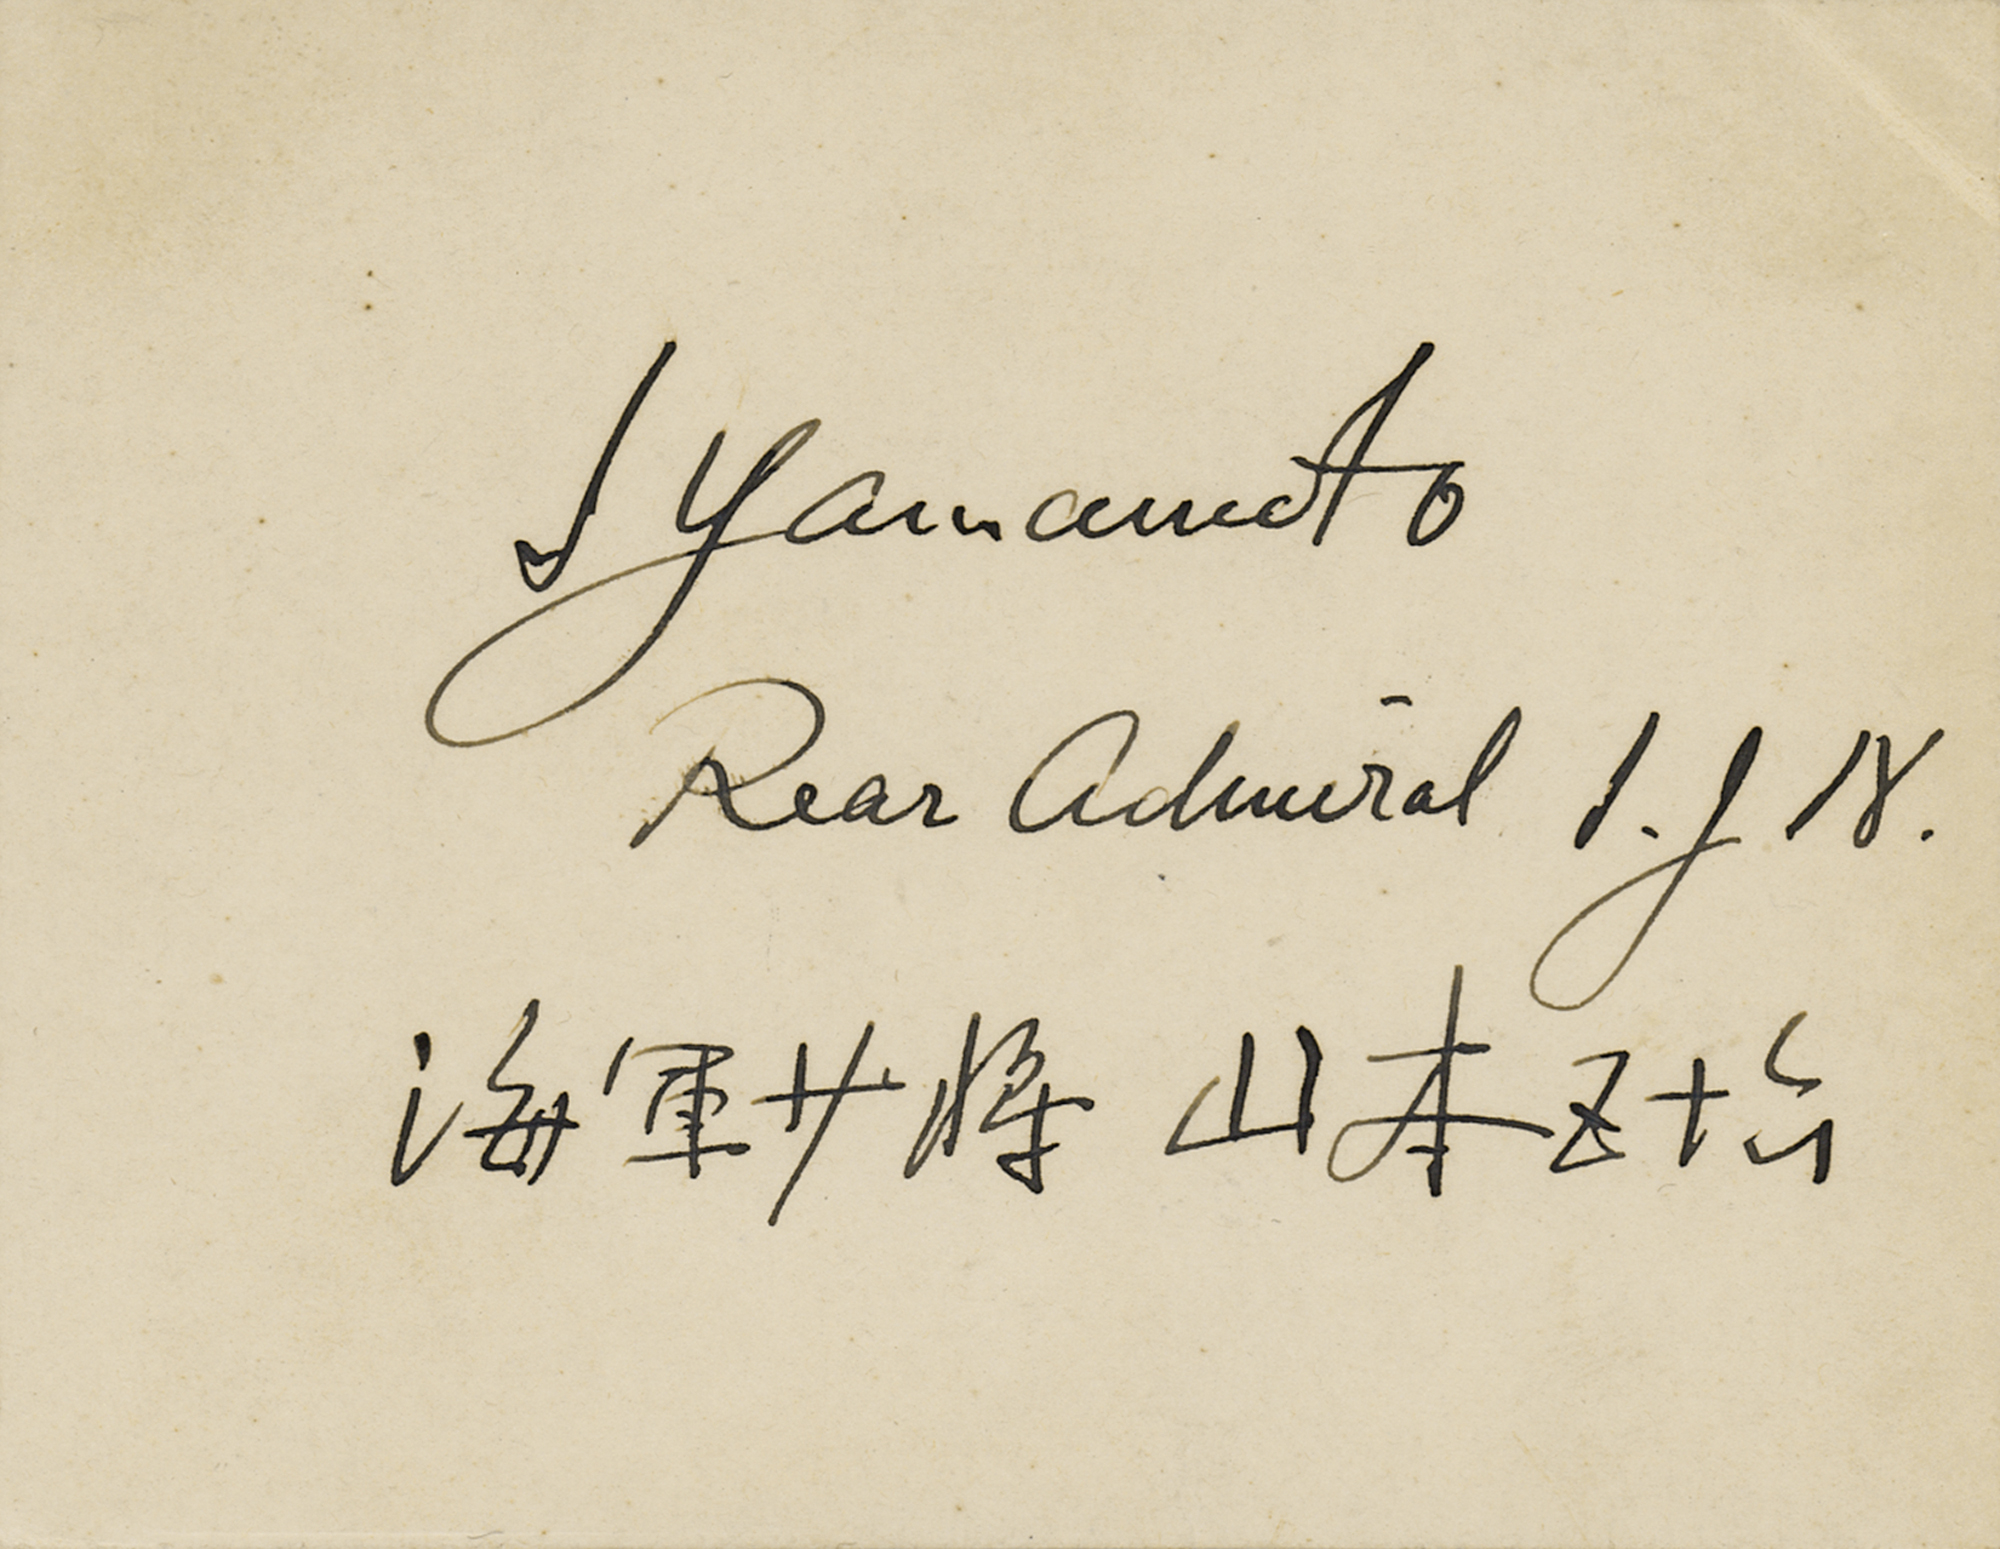 I Yamamoto
Rear Admiral I. J N.
海軍少将 山本五十六